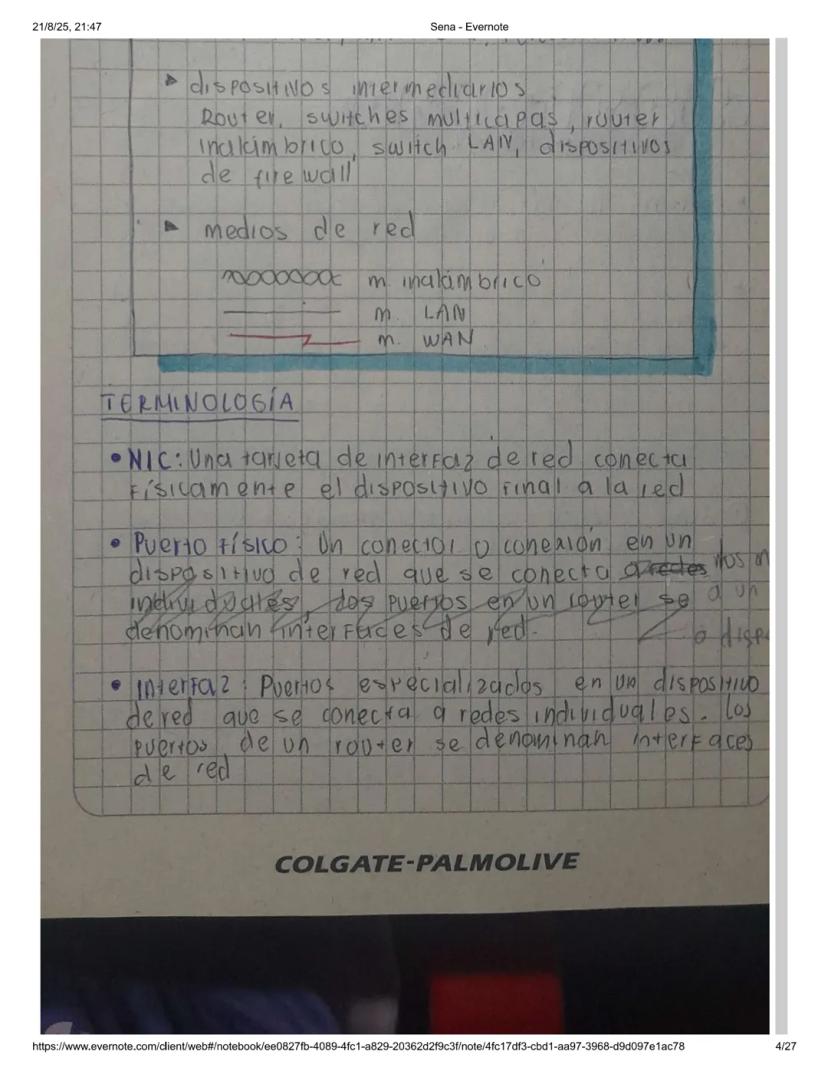 21/8/25, 21:47
Sena - Evernote
dispositivos intermediarios
Router, switches multicapas, router
inalámbrico, switch LAN, dispositivos
de firewall
medios de red
m. inalámbrico
m. LAN
m. WAN
TERMINOLOGÍA
• NIC: Una tarjeta de interfaz de red conecta
físicamente el dispositivo final a la red
• Puerto físico: Un conector o conexión en un
dispositivo de red que se conecta a redes
individuales, los puertos en un router se a un
denominan interfaces de red. o disp
• Interfaz: Puertos especializados en un dispositivo
de red que se conecta a redes individuales. Los
puertos de un router se denominan interfaces
de red
COLGATE-PALMOLIVE
https://www.evernote.com/client/web#/notebook/ee0827fb-4089-4fc1-a829-20362d2f9c3f/note/4fc17df3-cbd1-aa97-3968-d9d097e1ac78
4/27